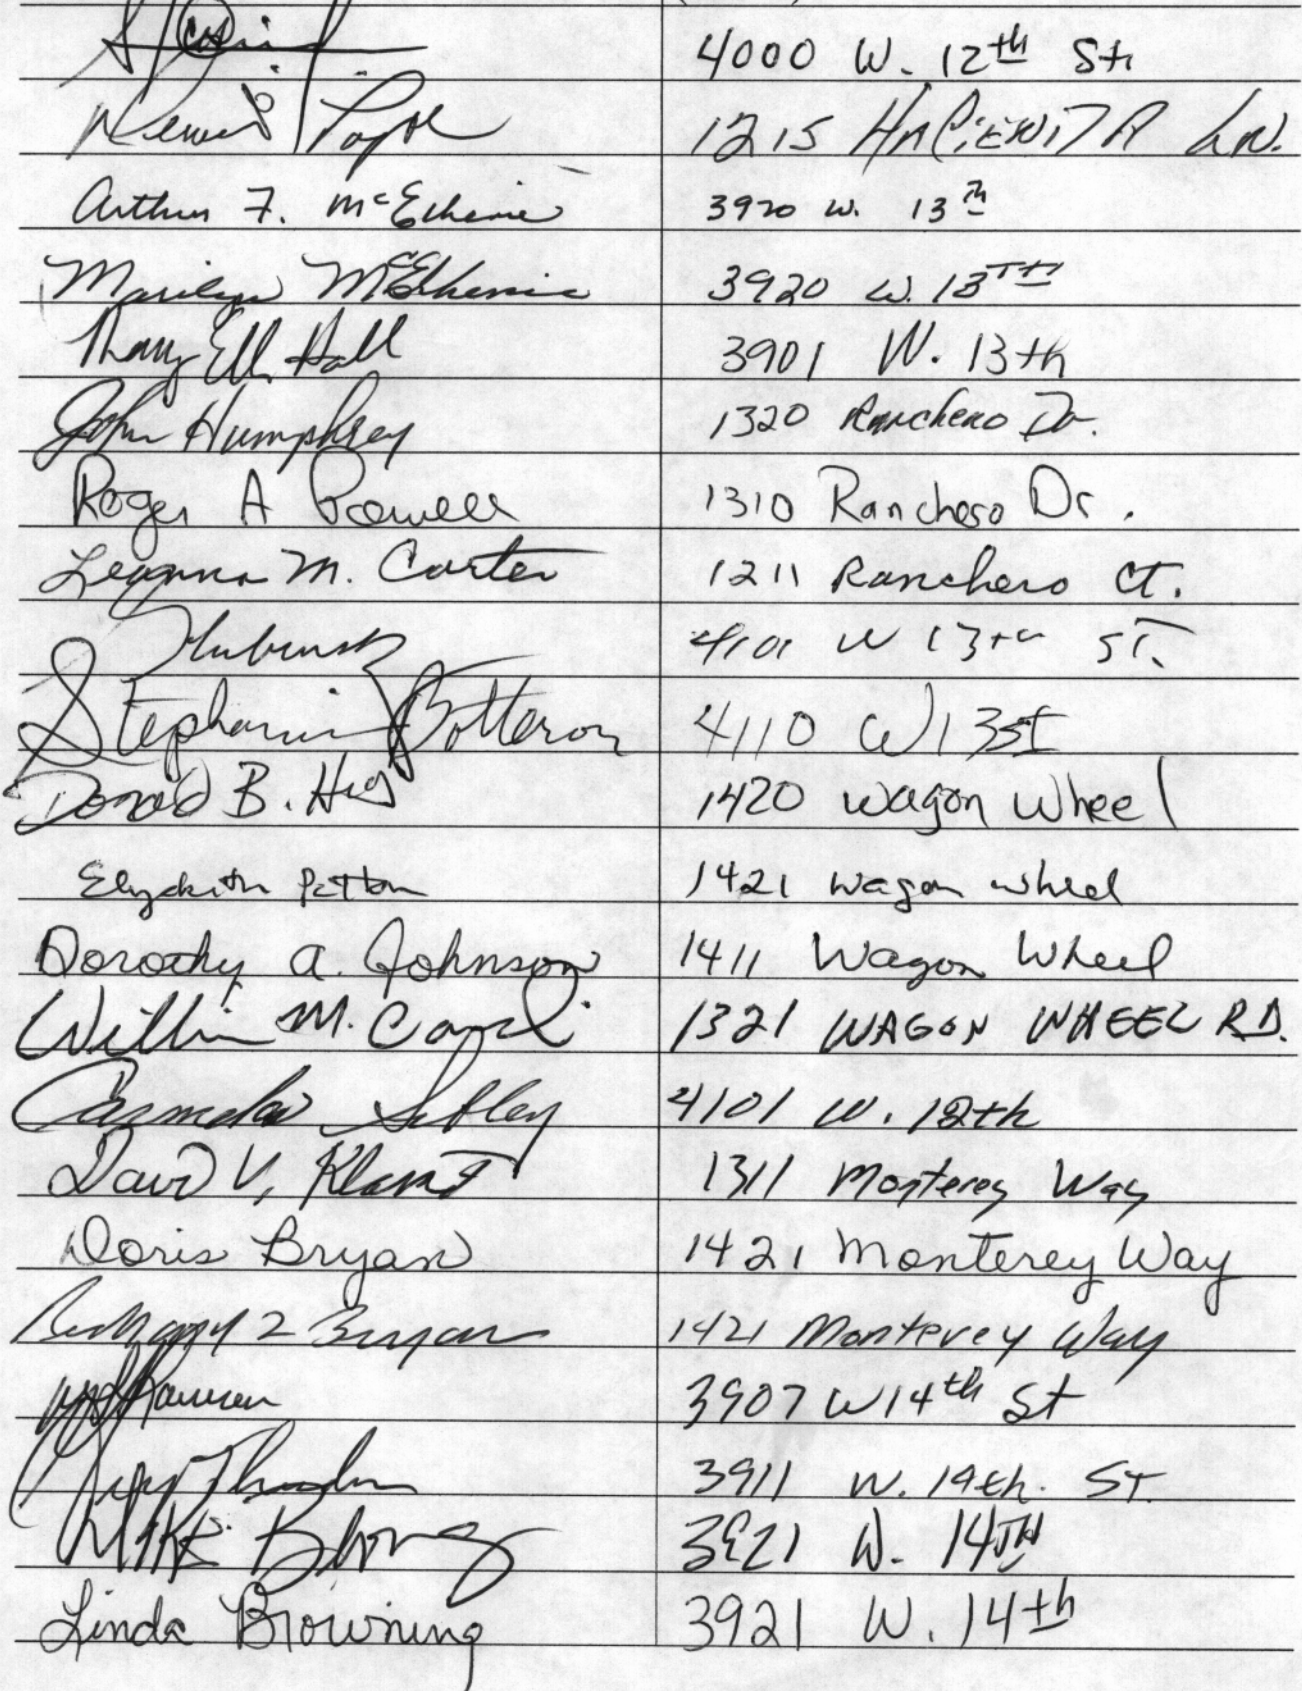 4000 W. 12th St.
1215 HACIENDA LN.
Arthur F. McElhenie 3920 W. 13th
Marilyn McElhenie 3920 W. 13TH
Mary Ell Hall 3901 W. 13th
John Humphrey 1320 Ranchero Dr.
Roger A Powell 1310 Ranchero Dr.
Leanna M. Carter 1211 Ranchero Ct.
4101 W 13th ST.
Stephanie Botteron 4110 W 13 St
Donald B. 1420 Wagon Wheel
Elizabeth Patton 1421 Wagon Wheel
Dorothy A. Johnson 1411 Wagon Wheel
William M. 1321 WAGON WHEEL RD.
Sibley 4101 W. 12th
David V. 1311 Monterey Way
Doris Bryan 1421 Monterey Way
Bryan 1421 Monterey Way
3907 W 14th St
3911 W. 14th. ST.
MIKE 3921 W. 14TH
Linda Browning 3921 W. 14th